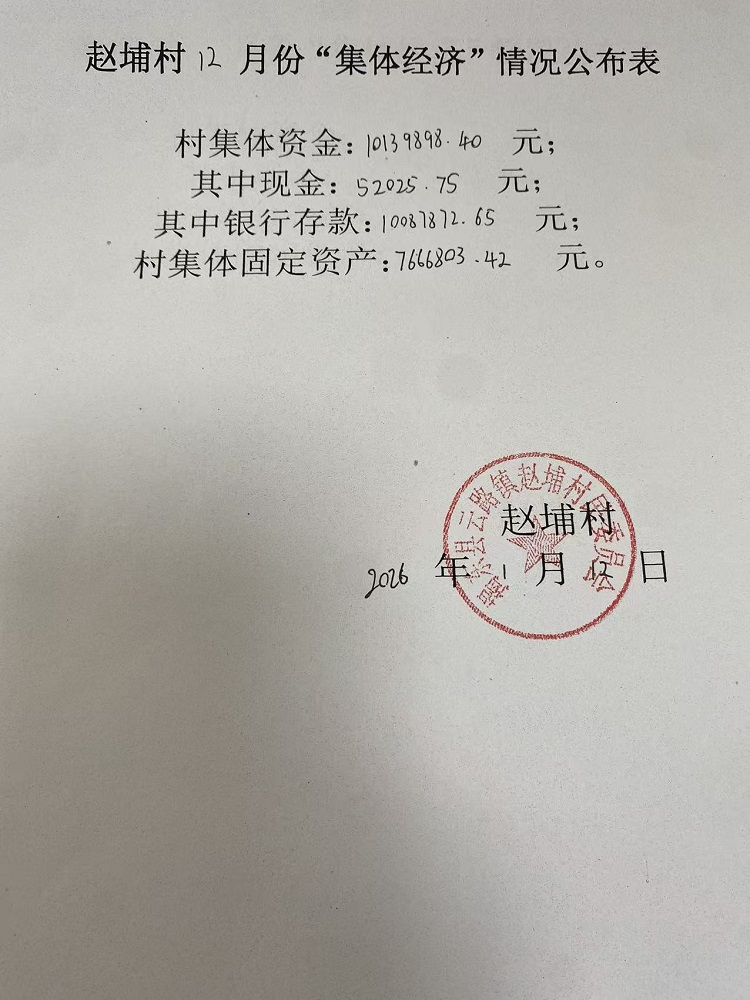 赵埔村 12 月份“集体经济”情况公布表
村集体资金：10139898.40 元；
其中现金：52025.75 元；
其中银行存款：10087872.65 元；
村集体固定资产：7666803.42 元。
揭东县云路镇赵埔村民委员会
赵埔村
2026 年 1 月 12 日